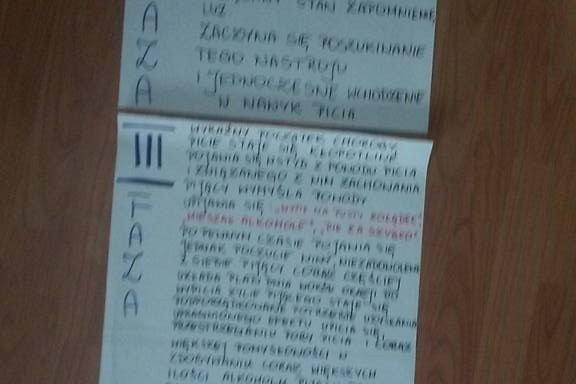 STAN ZAPOMNIENIE,
LUZ
ZACZYNA SIĘ POSZUKIWANIE
TEGO NASTROJU
I JEDNOCZESNE WCHODZENIE
W NAWYK PICIA
AZA
III
FAZA
WYRAŹNY POCZĄTEK CHOROBY
PICIE STAJE SIĘ KŁOPOTLIWE
POJAWIA SIĘ WSTYD Z POWODU PICIA
I ZWIĄZANEGO Z NIM ZACHOWANIA
PIJĄCY WYMYŚLA POWODY
UPIJANIA SIĘ „WYPIŁ NA PUSTY ŻOŁĄDEK",
„MIESZAŁ ALKOHOLE", „PIŁ ZA SZYBKO"
PO PEWNYM CZASIE POJAWIA SIĘ
JEDNAK POCZUCIE WINY, NIEZADOWOLENIA
Z SIEBIE PIJĄCY CORAZ CZĘŚCIEJ
UKŁADA PLAN DNIA WOKÓŁ OKAZJI DO
WYPICIA ŻYCIE PIJĄCEGO STAJE SIĘ
PODPORZĄDKOWANE POTRZEBIE UZYSKANIA
UPRAGNIONEGO EFEKTU UPICIA SIĘ,
PRZESTRZEGANIU PORY PICIA I CORAZ
WIĘKSZEJ POMYSŁOWOŚCI W
ZDOBYWANIU CORAZ WIĘKSZYCH
ILOŚCI ALKOHOLU